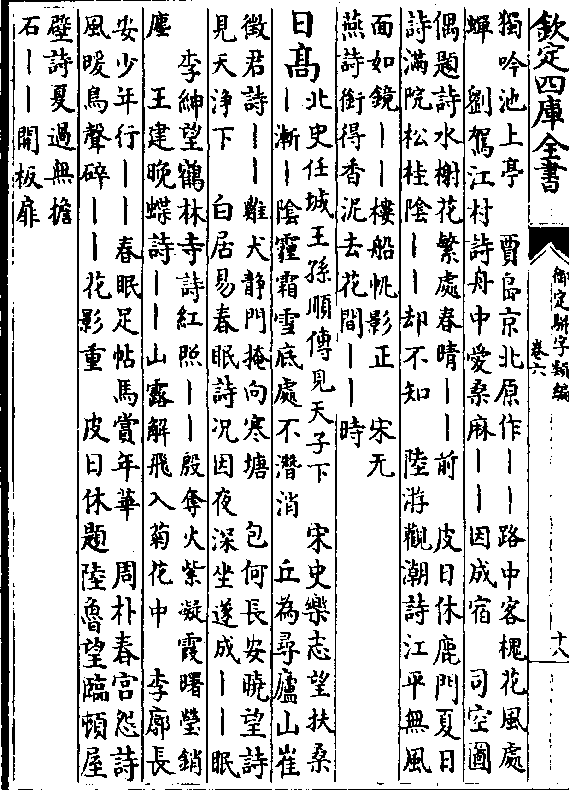 欽定四庫全書
御定駢字類編
卷六
十八
獨吟池上亭 賈島京北原作〡〡路中客槐花風處
蟬 劉駕江村詩舟中愛桑麻〡〡因成宿 司空圖
偶題詩水榭花繁處春晴〡〡前 皮日休鹿門夏日
詩滿院松桂陰〡〡却不知 陸游觀潮詩江平無風
面如鏡〡〡樓船帆影正 宋无
燕詩銜得香泥去花間〡〡時
日高
北史任城王孫順傳見天子下 宋史樂志望扶桑
〡漸〡陰霾霜雪底處不潛消 丘為尋廬山崔
徵君詩〡〡雞犬静門掩向寒塘 包何長安曉望詩
見天浄下 白居易春眠詩况因夜深坐遂成〡〡眠
李紳望鶴林寺詩紅照〡〡殷奪火紫凝霞曙瑩銷
塵 王建晚蝶詩〡〡山露解飛入菊花中 李廓長
安少年行〡〡春眠足帖馬賞年華 周朴春宫怨詩
風暖鳥聲碎〡〡花影重 皮日休題陸魯望臨頓屋
壁詩夏過無擔
石〡〡開板扉